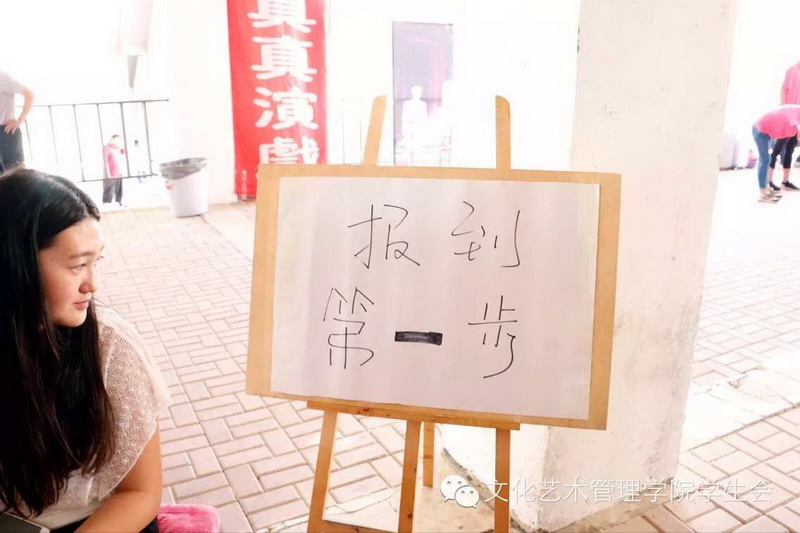 真真演戲
报到
第一步
文化艺术管理学院学生会